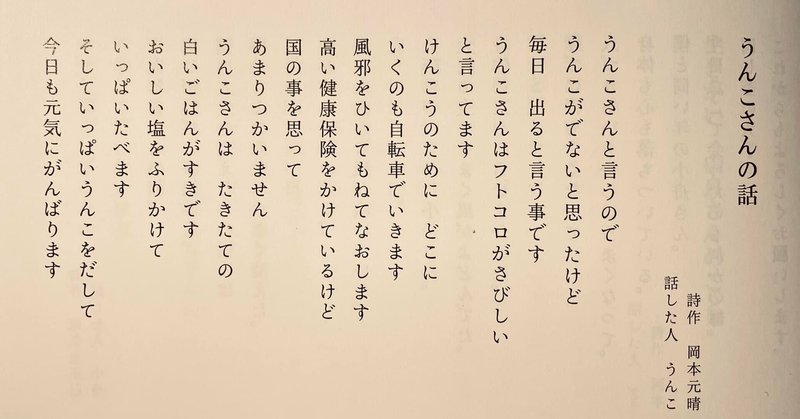 うんこさんの話
詩作　岡本元晴
話した人　うんこ
うんこさんと言うので
うんこがでないと思ったけど
毎日　出ると言う事です
うんこさんはフトコロがさびしい
と言ってます
けんこうのために　どこに
いくのも自転車でいきます
風邪をひいてもねてなおします
高い健康保険をかけているけど
国の事を思って
あまりつかいません
うんこさんは　たきたての
白いごはんがすきです
おいしい塩をふりかけて
いっぱいたべます
そしていっぱいうんこをだして
今日も元気にがんばります